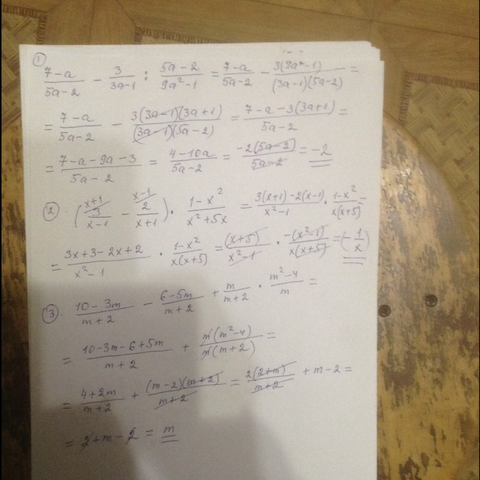 1) (7-a)/(5a-2) - 3/(3a-1) : (5a-2)/(9a²-1) = (7-a)/(5a-2) - 3(9a²-1)/((3a-1)(5a-2)) =
= (7-a)/(5a-2) - 3(3a-1)(3a+1)/((3a-1)(5a-2)) = (7-a-3(3a+1))/(5a-2) =
= (7-a-9a-3)/(5a-2) = (4-10a)/(5a-2) = -2(5a-2)/(5a-2) = -2
2) (3/(x-1) - 2/(x+1)) · (1-x²)/(x²+5x) = (3(x+1)-2(x-1))/(x²-1) · (1-x²)/(x(x+5)) =
= (3x+3-2x+2)/(x²-1) · (1-x²)/(x(x+5)) = (x+5)/(x²-1) · -(x²-1)/(x(x+5)) = (-1/x)
3) (10-3m)/(m+2) - (6-5m)/(m+2) + m/(m+2) · (m²-4)/m =
= (10-3m-6+5m)/(m+2) + m(m²-4)/(m(m+2)) =
= (4+2m)/(m+2) + (m-2)(m+2)/(m+2) = 2(2+m)/(m+2) + m-2 =
= 2+m-2 = m